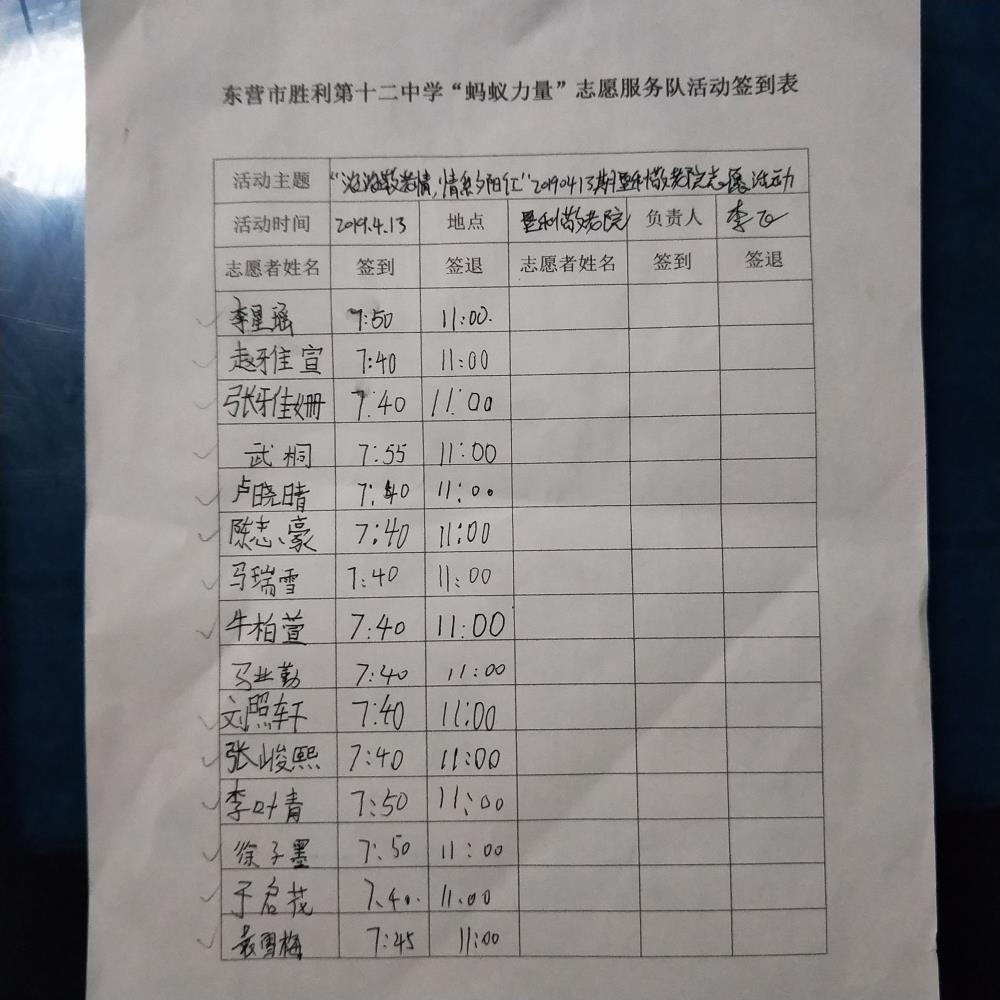 东营市胜利第十二中学“蚂蚁力量”志愿服务队活动签到表
活动主题 “浓浓敬老情，情系夕阳红”20190413期垦利敬老院志愿活动
活动时间 2019.4.13 地点 垦利敬老院 负责人 李飞
志愿者姓名 签到 签退 志愿者姓名 签到 签退
李星瑶 7:50 11:00.
赵雅宣 7:40 11:00
张雅姗 7:40 11:00
武桐 7:55 11:00
卢晓晴 7:40 11:00
陈志豪 7:40 11:00
马瑞雪 7:40 11:00
牛柏萱 7:40 11:00
马业勤 7:40 11:00
刘照轩 7:40 11:00
张峻熙 7:40 11:00
李叶青 7:50 11:00
徐子墨 7:50 11:00
于启茂 7.40. 11.00
袁雪梅 7:45 11:00